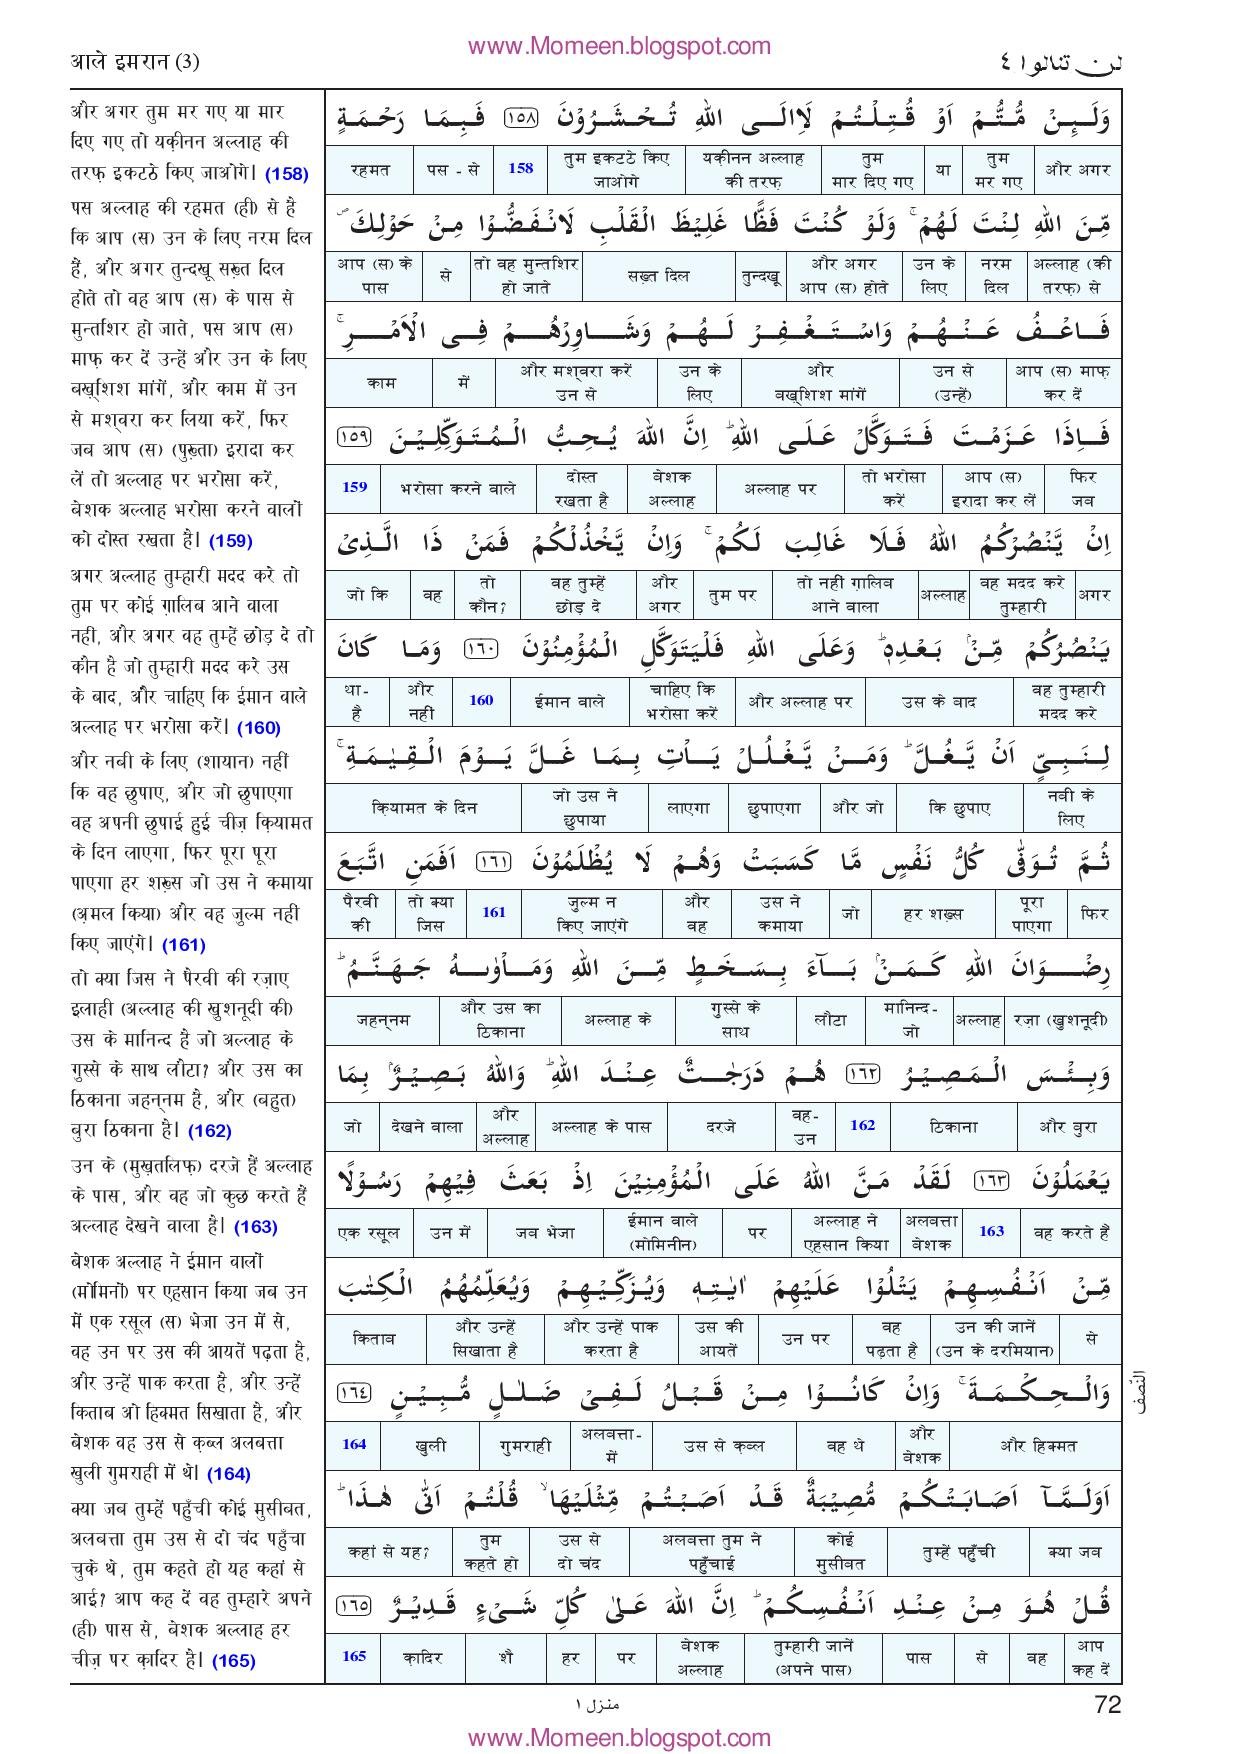 www.Momeen.blogspot.com
आले इमरान (3)
لن تنالوا ٤
और अगर तुम मर गए या मार
दिए गए तो यक़ीनन अल्लाह की
तरफ़ इकटठे किए जाओगे। (158)
पस अल्लाह की रहमत (ही) से है
कि आप (स) उन के लिए नरम दिल
हैं, और अगर तुन्दखू सख़्त दिल
होते तो वह आप (स) के पास से
मुन्तशिर हो जाते, पस आप (स)
माफ़ कर दें उन्हें और उन के लिए
बख़्शिश मांगें, और काम में उन
से मश्वरा कर लिया करें, फिर
जब आप (स) (पुख़्ता) इरादा कर
लें तो अल्लाह पर भरोसा करें,
बेशक अल्लाह भरोसा करने वालों
को दोस्त रखता है। (159)
अगर अल्लाह तुम्हारी मदद करे तो
तुम पर कोई ग़ालिब आने वाला
नही, और अगर वह तुम्हें छोड़ दे तो
कौन है जो तुम्हारी मदद करे उस
के बाद, और चाहिए कि ईमान वाले
अल्लाह पर भरोसा करें। (160)
और नबी के लिए (शायान) नहीं
कि वह छुपाए, और जो छुपाएगा
वह अपनी छुपाई हुई चीज़ क़ियामत
के दिन लाएगा, फिर पूरा पूरा
पाएगा हर शख़्स जो उस ने कमाया
(अ़मल किया) और वह ज़ुल्म नही
किए जाएंगे। (161)
तो क्या जिस ने पैरवी की रज़ाए
इलाही (अल्लाह की खुशनूदी की)
उस के मानिन्द है जो अल्लाह के
गुस्से के साथ लौटा? और उस का
ठिकाना जहन्नम है, और (बहुत)
बुरा ठिकाना है। (162)
उन के (मुख़तलिफ़) दरजे हैं अल्लाह
के पास, और वह जो कुछ करते हैं
अल्लाह देखने वाला है। (163)
बेशक अल्लाह ने ईमान वालों
(मोमिनों) पर एहसान किया जब उन
में एक रसूल (स) भेजा उन में से,
वह उन पर उस की आयतें पढ़ता है,
और उन्हें पाक करता है, और उन्हें
किताब ओ हिक्मत सिखाता है, और
बेशक वह उस से क़ब्ल अलबत्ता
खुली गुमराही में थे। (164)
क्या जब तुम्हें पहुँची कोई मुसीबत,
अलबत्ता तुम उस से दो चंद पहुँचा
चुके थे, तुम कहते हो यह कहां से
आई? आप कह दें वह तुम्हारे अपने
(ही) पास से, बेशक अल्लाह हर
चीज़ पर क़ादिर है। (165)
وَلَىِٕنْ مُّتُّمْ اَوْ قُتِلْتُمْ لَاِالَى اللّٰهِ تُحْشَرُوْنَ ١٥٨ فَبِمَا رَحْمَةٍ
रहमत पस - से 158 तुम इकटठे किए यक़ीनन अल्लाह तुम या तुम और अगर
जाओगे की तरफ़ मार दिए गए मर गए
مِّنَ اللّٰهِ لِنْتَ لَهُمْ ۚ وَلَوْ كُنْتَ فَظًّا غَلِيْظَ الْقَلْبِ لَانْفَضُّوْا مِنْ حَوْلِكَ ۪
आप (स) के से तो वह मुन्तशिर सख़्त दिल तुन्दखू और अगर उन के नरम अल्लाह (की
पास हो जाते आप (स) होते लिए दिल तरफ़) से
فَاعْفُ عَنْهُمْ وَاسْتَغْفِرْ لَهُمْ وَشَاوِرْهُمْ فِى الْاَمْرِ ۚ
काम में और मश्वरा करें उन के और उन से आप (स) माफ़
उन से लिए बख़्शिश मांगें (उन्हें) कर दें
فَاِذَا عَزَمْتَ فَتَوَكَّلْ عَلَى اللّٰهِ ۭ اِنَّ اللّٰهَ يُحِبُّ الْمُتَوَكِّلِيْنَ ١٥٩
159 भरोसा करने वाले दोस्त बेशक अल्लाह पर तो भरोसा आप (स) फिर
रखता है अल्लाह करें इरादा कर लें जब
اِنْ يَّنْصُرْكُمُ اللّٰهُ فَلَا غَالِبَ لَكُمْ ۚ وَاِنْ يَّخْذُلْكُمْ فَمَنْ ذَا الَّذِىْ
जो कि वह तो वह तुम्हें और तुम पर तो नही ग़ालिब अल्लाह वह मदद करे अगर
कौन? छोड़ दे अगर आने वाला तुम्हारी
يَنْصُرُكُمْ مِّنْۢ بَعْدِهٖ ۭ وَعَلَى اللّٰهِ فَلْيَتَوَكَّلِ الْمُؤْمِنُوْنَ ١٦٠ وَمَا كَانَ
था- और 160 ईमान वाले चाहिए कि और अल्लाह पर उस के बाद वह तुम्हारी
है नही भरोसा करें मदद करे
لِنَبِىٍّ اَنْ يَّغُلَّ ۭ وَمَنْ يَّغْلُلْ يَاْتِ بِمَا غَلَّ يَوْمَ الْقِيٰمَةِ ۚ
क़ियामत के दिन जो उस ने लाएगा छुपाएगा और जो कि छुपाए नबी के
छुपाया लिए
ثُمَّ تُوَفّٰى كُلُّ نَفْسٍ مَّا كَسَبَتْ وَهُمْ لَا يُظْلَمُوْنَ ١٦١ اَفَمَنِ اتَّبَعَ
पैरवी तो क्या 161 ज़ुल्म न और उस ने जो हर शख़्स पूरा फिर
की जिस किए जाएंगे वह कमाया पाएगा
رِضْوَانَ اللّٰهِ كَمَنْۢ بَآءَ بِسَخَطٍ مِّنَ اللّٰهِ وَمَاْوٰىهُ جَهَنَّمُ ۭ
जहन्नम और उस का अल्लाह के गुस्से के लौटा मानिन्द- अल्लाह रज़ा (खुशनूदी)
ठिकाना साथ जो
وَبِئْسَ الْمَصِيْرُ ١٦٢ هُمْ دَرَجٰتٌ عِنْدَ اللّٰهِ ۭ وَاللّٰهُ بَصِيْرٌۢ بِمَا
जो देखने वाला और अल्लाह के पास दरजे वह- 162 ठिकाना और बुरा
अल्लाह उन
يَعْمَلُوْنَ ١٦٣ لَقَدْ مَنَّ اللّٰهُ عَلَى الْمُؤْمِنِيْنَ اِذْ بَعَثَ فِيْهِمْ رَسُوْلًا
एक रसूल उन में जब भेजा ईमान वाले पर अल्लाह ने अलबत्ता 163 वह करते हैं
(मोमिनीन) एहसान किया बेशक
مِّنْ اَنْفُسِهِمْ يَتْلُوْا عَلَيْهِمْ اٰيٰتِهٖ وَيُزَكِّيْهِمْ وَيُعَلِّمُهُمُ الْكِتٰبَ
किताब और उन्हें और उन्हें पाक उस की उन पर वह उन की जानें से
सिखाता है करता है आयतें पढ़ता है (उन के दरमियान)
وَالْحِكْمَةَ ۚ وَاِنْ كَانُوْا مِنْ قَبْلُ لَفِىْ ضَلٰلٍ مُّبِيْنٍ ١٦٤
النّصف
164 खुली गुमराही अलबत्ता- उस से क़ब्ल वह थे और और हिक्मत
में बेशक
اَوَلَمَّآ اَصَابَتْكُمْ مُّصِيْبَةٌ قَدْ اَصَبْتُمْ مِّثْلَيْهَا ۙ قُلْتُمْ اَنّٰى هٰذَا ۭ
कहां से यह? तुम उस से अलबत्ता तुम ने कोई तुम्हें पहुँची क्या जब
कहते हो दो चंद पहुँचाई मुसीबत
قُلْ هُوَ مِنْ عِنْدِ اَنْفُسِكُمْ ۭ اِنَّ اللّٰهَ عَلٰى كُلِّ شَىْءٍ قَدِيْرٌ ١٦٥
165 क़ादिर शै हर पर बेशक तुम्हारी जानें पास से वह आप
अल्लाह (अपने पास) कह दें
منزل ١
72
www.Momeen.blogspot.com